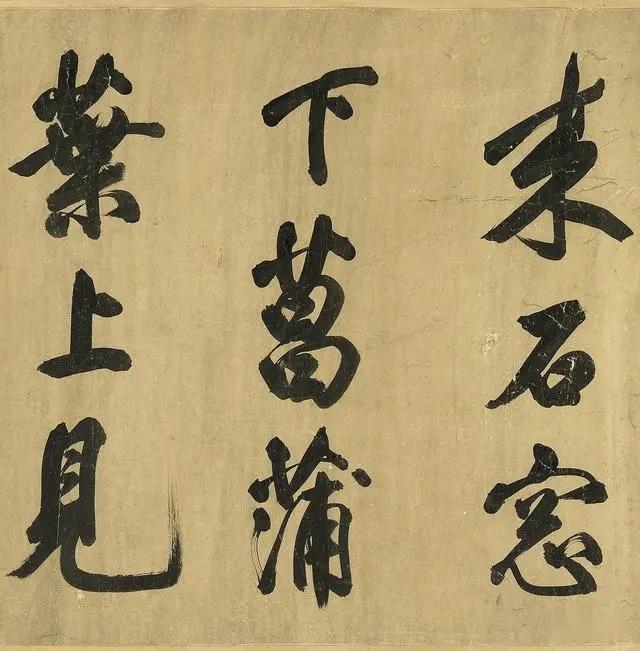 来石窓
下菖蒲
葉上見